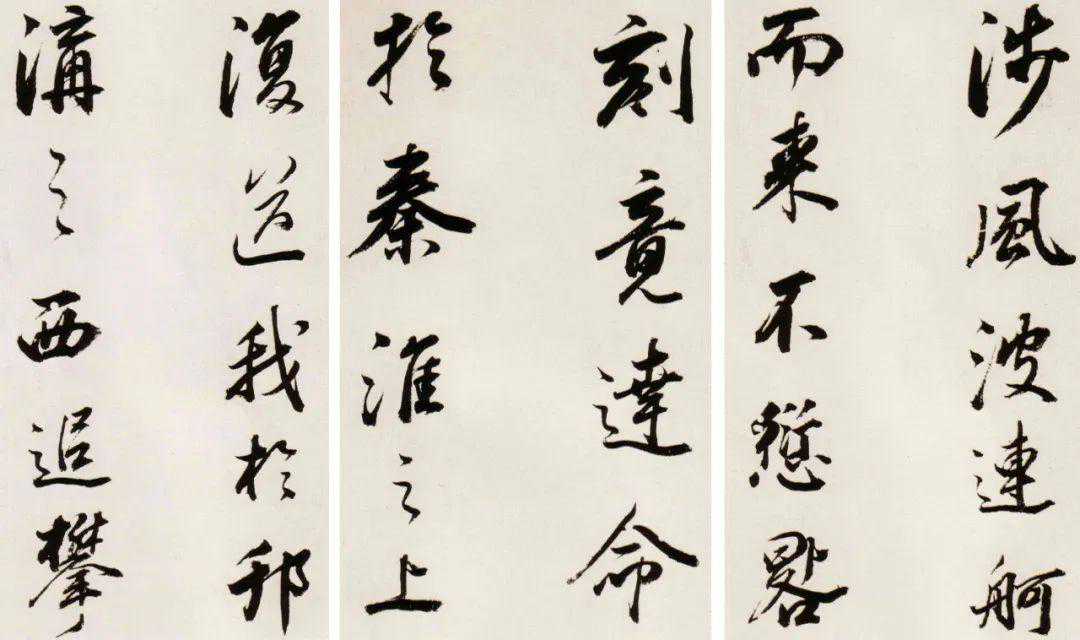 涉風波連舸
而來不愆晷
刻竟達命
於秦淮之上
復送我於邗
溝之西追攀